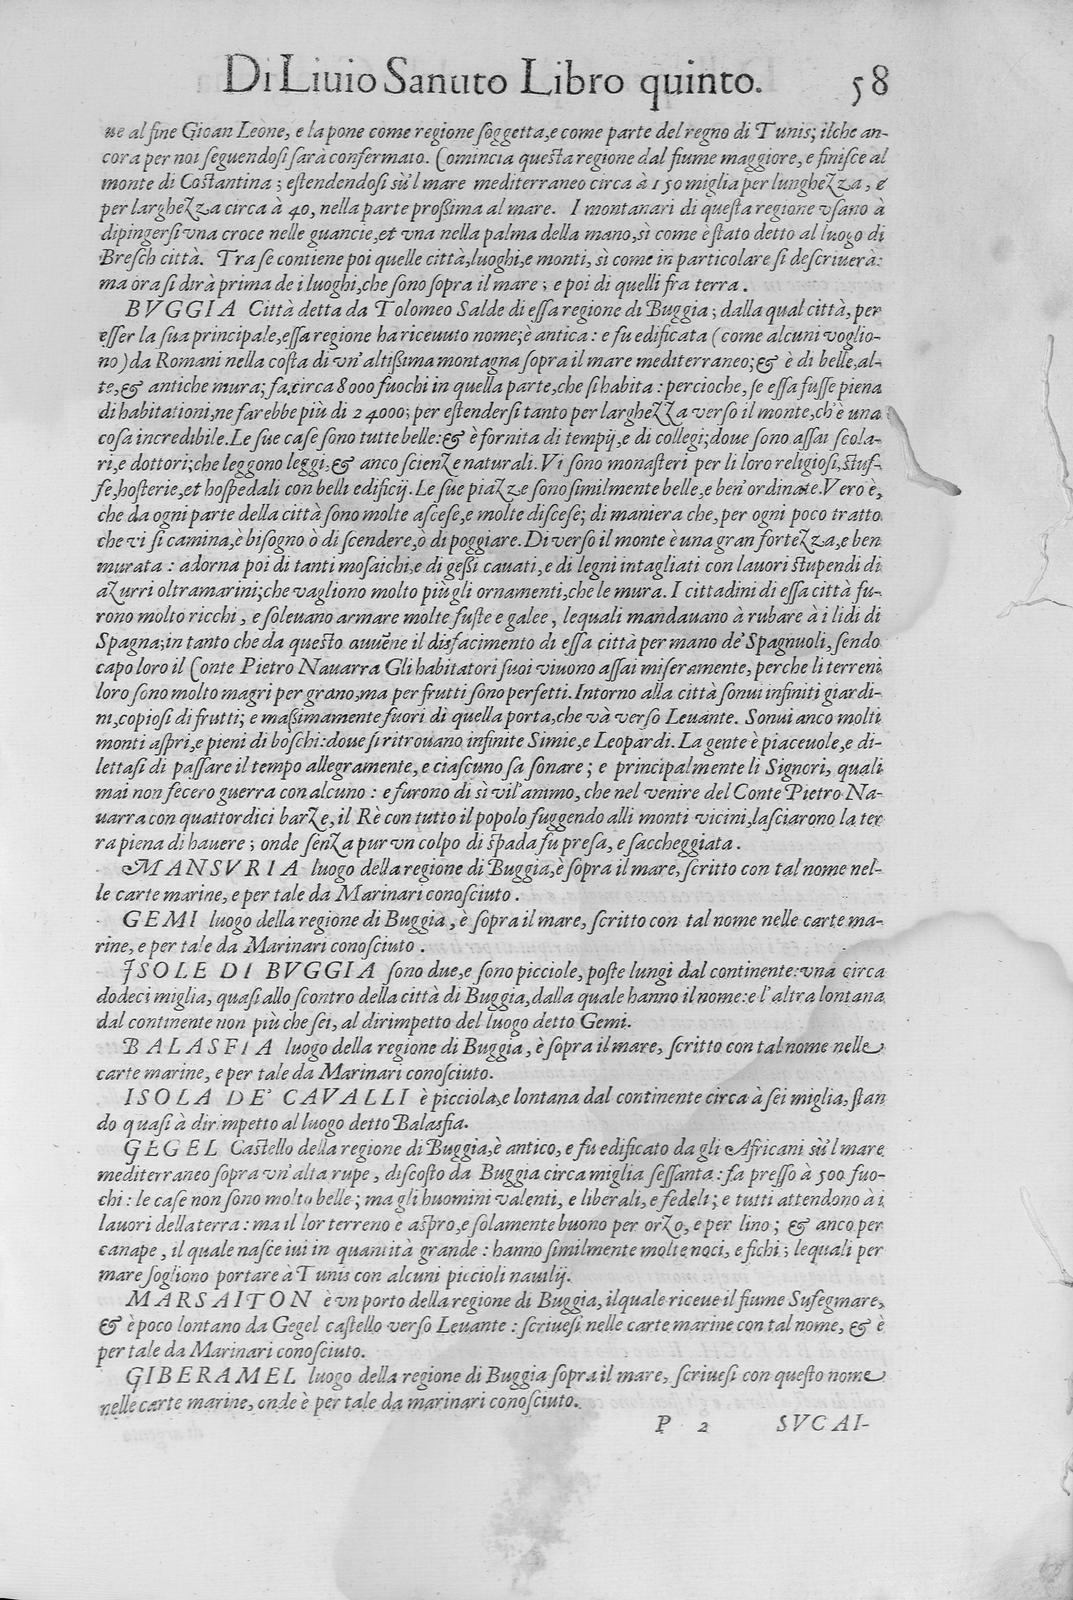 Di Liuio Sanuto Libro quinto. 58
ne al fine Gioan Leone, e la pone come regione soggetta, e come parte del regno di Tunis; ilche an-
cora per noi seguendosi sarà confermato. Comincia questa regione dal fiume maggiore, e finisce al
monte di Costantina; estendendosi sù'l mare mediterraneo circa à 150 miglia per lunghezza, e
per larghezza circa à 40, nella parte prossima al mare. I montanari di questa regione vsano à
dipingersi vna croce nelle guancie, et vna nella palma della mano, sì come è stato detto al luogo di
Bresch città. Tra se contiene poi quelle città, luoghi, e monti, sì come in particolare si descriuerà:
ma ora si dirà prima de i luoghi, che sono sopra il mare; e poi di quelli fra terra.
BVGGIA Città detta da Tolomeo Salde di essa regione di Buggia; dalla qual città, per
esser la sua principale, essa regione ha riceuuto nome; è antica: e fu edificata (come alcuni voglio-
no) da Romani nella costa di vn'altissima montagna sopra il mare mediterraneo; & è di belle, al-
te, & antiche mura; fa circa 8000 fuochi in quella parte, che si habita: percioche, se essa fusse piena
di habitationi, ne farebbe più di 24000; per estendersi tanto per larghezza verso il monte, ch'è una
cosa incredibile. Le sue case sono tutte belle: & è fornita di tempij, e di collegi; doue sono assai scola-
ri, e dottori; che leggono leggi, & anco scienze naturali. Vi sono monasteri per li loro religiosi, stuf-
fe, hosterie, et hospedali con belli edificij. Le sue piazze sono similmente belle, e ben'ordinate. Vero è,
che da ogni parte della città sono molte ascese, e molte discese; di maniera che, per ogni poco tratto
che vi si camina, è bisogno ò di scendere, ò di poggiare. Di verso il monte è una gran fortezza, e ben
murata: adorna poi di tanti mosaichi, e di gessi cauati, e di legni intagliati con lauori stupendi di
azurri oltramarini; che vagliono molto più gli ornamenti, che le mura. I cittadini di essa città fu-
rono molto ricchi, e soleuano armare molte fuste e galee, lequali mandauano à rubare à i lidi di
Spagna; in tanto che da questo auuēne il disfacimento di essa città per mano de' Spagnuoli, sendo
capo loro il Conte Pietro Nauarra Gli habitatori suoi viuono assai miseramente, perche li terreni
loro sono molto magri per grano, ma per frutti sono perfetti. Intorno alla città sonui infiniti giardi-
ni, copiosi di frutti; e massimamente fuori di quella porta, che và verso Leuante. Sonui anco molti
monti aspri, e pieni di boschi: doue si ritrouano infinite Simie, e Leopardi. La gente è piaceuole, e di-
lettasi di passare il tempo allegramente, e ciascuno sa sonare; e principalmente li Signori, quali
mai non fecero guerra con alcuno: e furono di sì vil'animo, che nel venire del Conte Pietro Na-
uarra con quattordici barze, il Rè con tutto il popolo fuggendo alli monti vicini, lasciarono la ter
ra piena di hauere; onde senza pur vn colpo di spada fu presa, e saccheggiata.
MANSVRIA luogo della regione di Buggia, è sopra il mare, scritto con tal nome nel-
le carte marine, e per tale da Marinari conosciuto.
GEMI luogo della regione di Buggia, è sopra il mare, scritto con tal nome nelle carte ma-
rine, e per tale da Marinari conosciuto.
ISOLE DI BVGGIA sono due, e sono picciole, poste lungi dal continente: vna circa
dodeci miglia, quasi allo scontro della città di Buggia, dalla quale hanno il nome: e l'altra lontana
dal continente non più che sei, al dirimpetto del luogo detto Gemi.
BALASFIA luogo della regione di Buggia, è sopra il mare, scritto con tal nome nelle
carte marine, e per tale da Marinari conosciuto.
ISOLA DE' CAVALLI è picciola, e lontana dal continente circa à sei miglia, stan
do quasi à dirimpetto al luogo detto Balasfia.
GEGEL Castello della regione di Buggia, è antico, e fu edificato da gli Africani sù'l mare
mediterraneo sopra vn'alta rupe, discosto da Buggia circa miglia sessanta: fa presso à 500 fuo-
chi: le case non sono molto belle; ma gli huomini valenti, e liberali, e fedeli; e tutti attendono à i
lauori della terra: ma il lor terreno è aspro, e solamente buono per orzo, e per lino; & anco per
canape, il quale nasce iui in quantità grande: hanno similmente molte noci, e fichi; lequali per
mare sogliono portare à Tunis con alcuni piccioli nauilij.
MARSAITON è vn porto della regione di Buggia, il quale riceue il fiume Sufegmare,
& è poco lontano da Gegel castello verso Leuante: scriuesi nelle carte marine con tal nome, & è
per tale da Marinari conosciuto.
GIBERAMEL luogo della regione di Buggia sopra il mare, scriuesi con questo nome
nelle carte marine, onde è per tale da marinari conosciuto.
P 2 SVCAI-